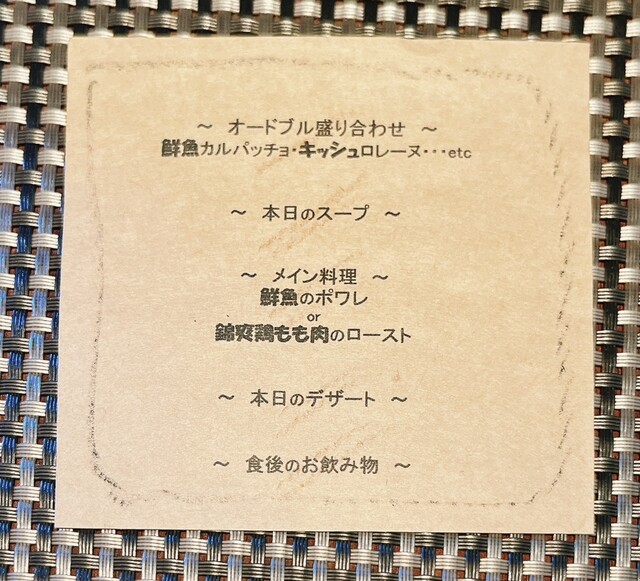 ～ オードブル盛り合わせ ～
鮮魚カルパッチョ・キッシュロレーヌ・・・etc
～ 本日のスープ ～
～ メイン料理 ～
鮮魚のポワレ
or
錦爽鶏もも肉のロースト
～ 本日のデザート ～
～ 食後のお飲み物 ～